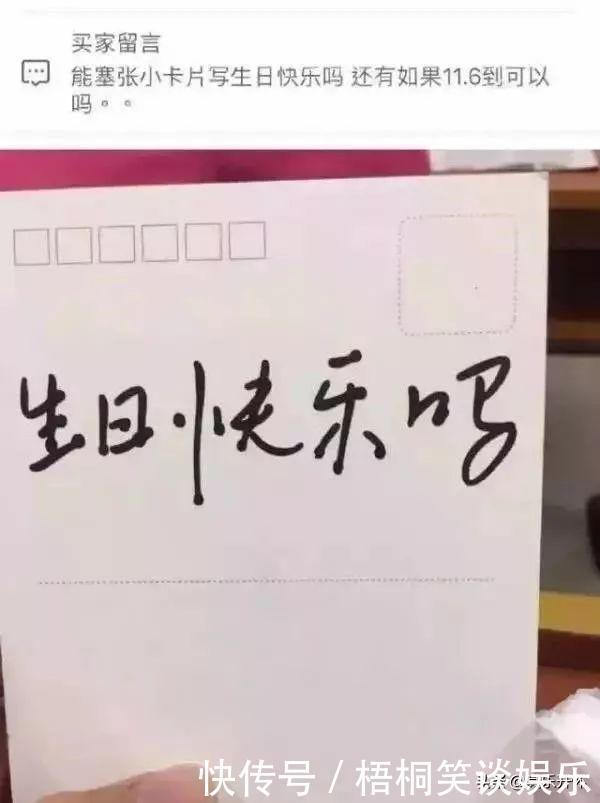 买家留言
能塞张小卡片写生日快乐吗 还有如果11.6到可以
吗。。
生日快乐吗
快传号/梧桐笑谈娱乐